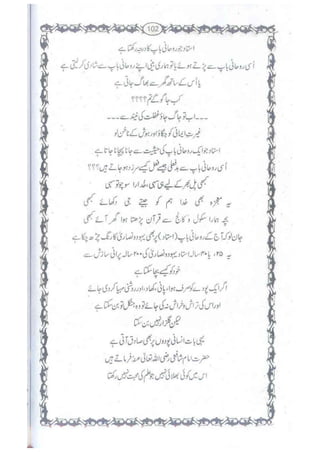 102
استاد جو روحانی باپ کا درجہ رکھتا ہے
اُسی روحانی باپ سے پڑتے ہوئے یا تو ہماری بیٹی اپنے روحانی باپ سے شادی کر لیتی ہے
یا اُس کے ساتھ گھر سے بھاگ جاتی ہے
کب جاگو گے تم؟؟؟؟
۔۔۔ اب تو جاگ جاؤ غفلت کی نیند سے ۔۔۔
غیرت ایمانی کو جگاؤ اور ہوش کے ناخن لو
استاد جو ایک روحانی باپ کی حیثیت سے جانا پہچانا جاتا ہے
اُسی روحانی باپ سے بدفعلی جیسے فعل کیسے سرزد ہو جاتے ہیں؟؟؟
کبھی پل بھر کے لیے ہی سہی، خدارا سوچو تو سہی
یہ معجزہ بھی خدا ہم کو جیتے جی دکھائے کبھی
بچہ ہمارا سکول و کالج سے قرآن پڑھتا ہوا گھر آئے کبھی
جان لو کہ آج کے روحانی باپ (استاد) پر بھی یہود و نصاریٰ کا رنگ چڑھ چکا ہے
یہ ۲۵، یا ۳۰ سالہ استاد یہود و نصاریٰ کی ۲۰۰ سالہ پرانی سازش سے
خود کو کیسے بچا سکتا ہے
اگر ایک پودے کو صرف ہوا، پانی، کھاد، اور روشنی مہیا کر دی جائے
اور اس کی تراش و خراش نہ کی جائے تو وہ جنگل تو بن سکتا ہے
لیکن گلزار نہیں بن سکتا
یہی بات انسانی پودوں پر بھی صادق آتی ہے
حضرت امام شافعی رضی اللہ تعالیٰ عنہ فرماتے ہیں
اس میں کوئی بھلائی نہیں جو علم کی محبت نہیں رکھتا